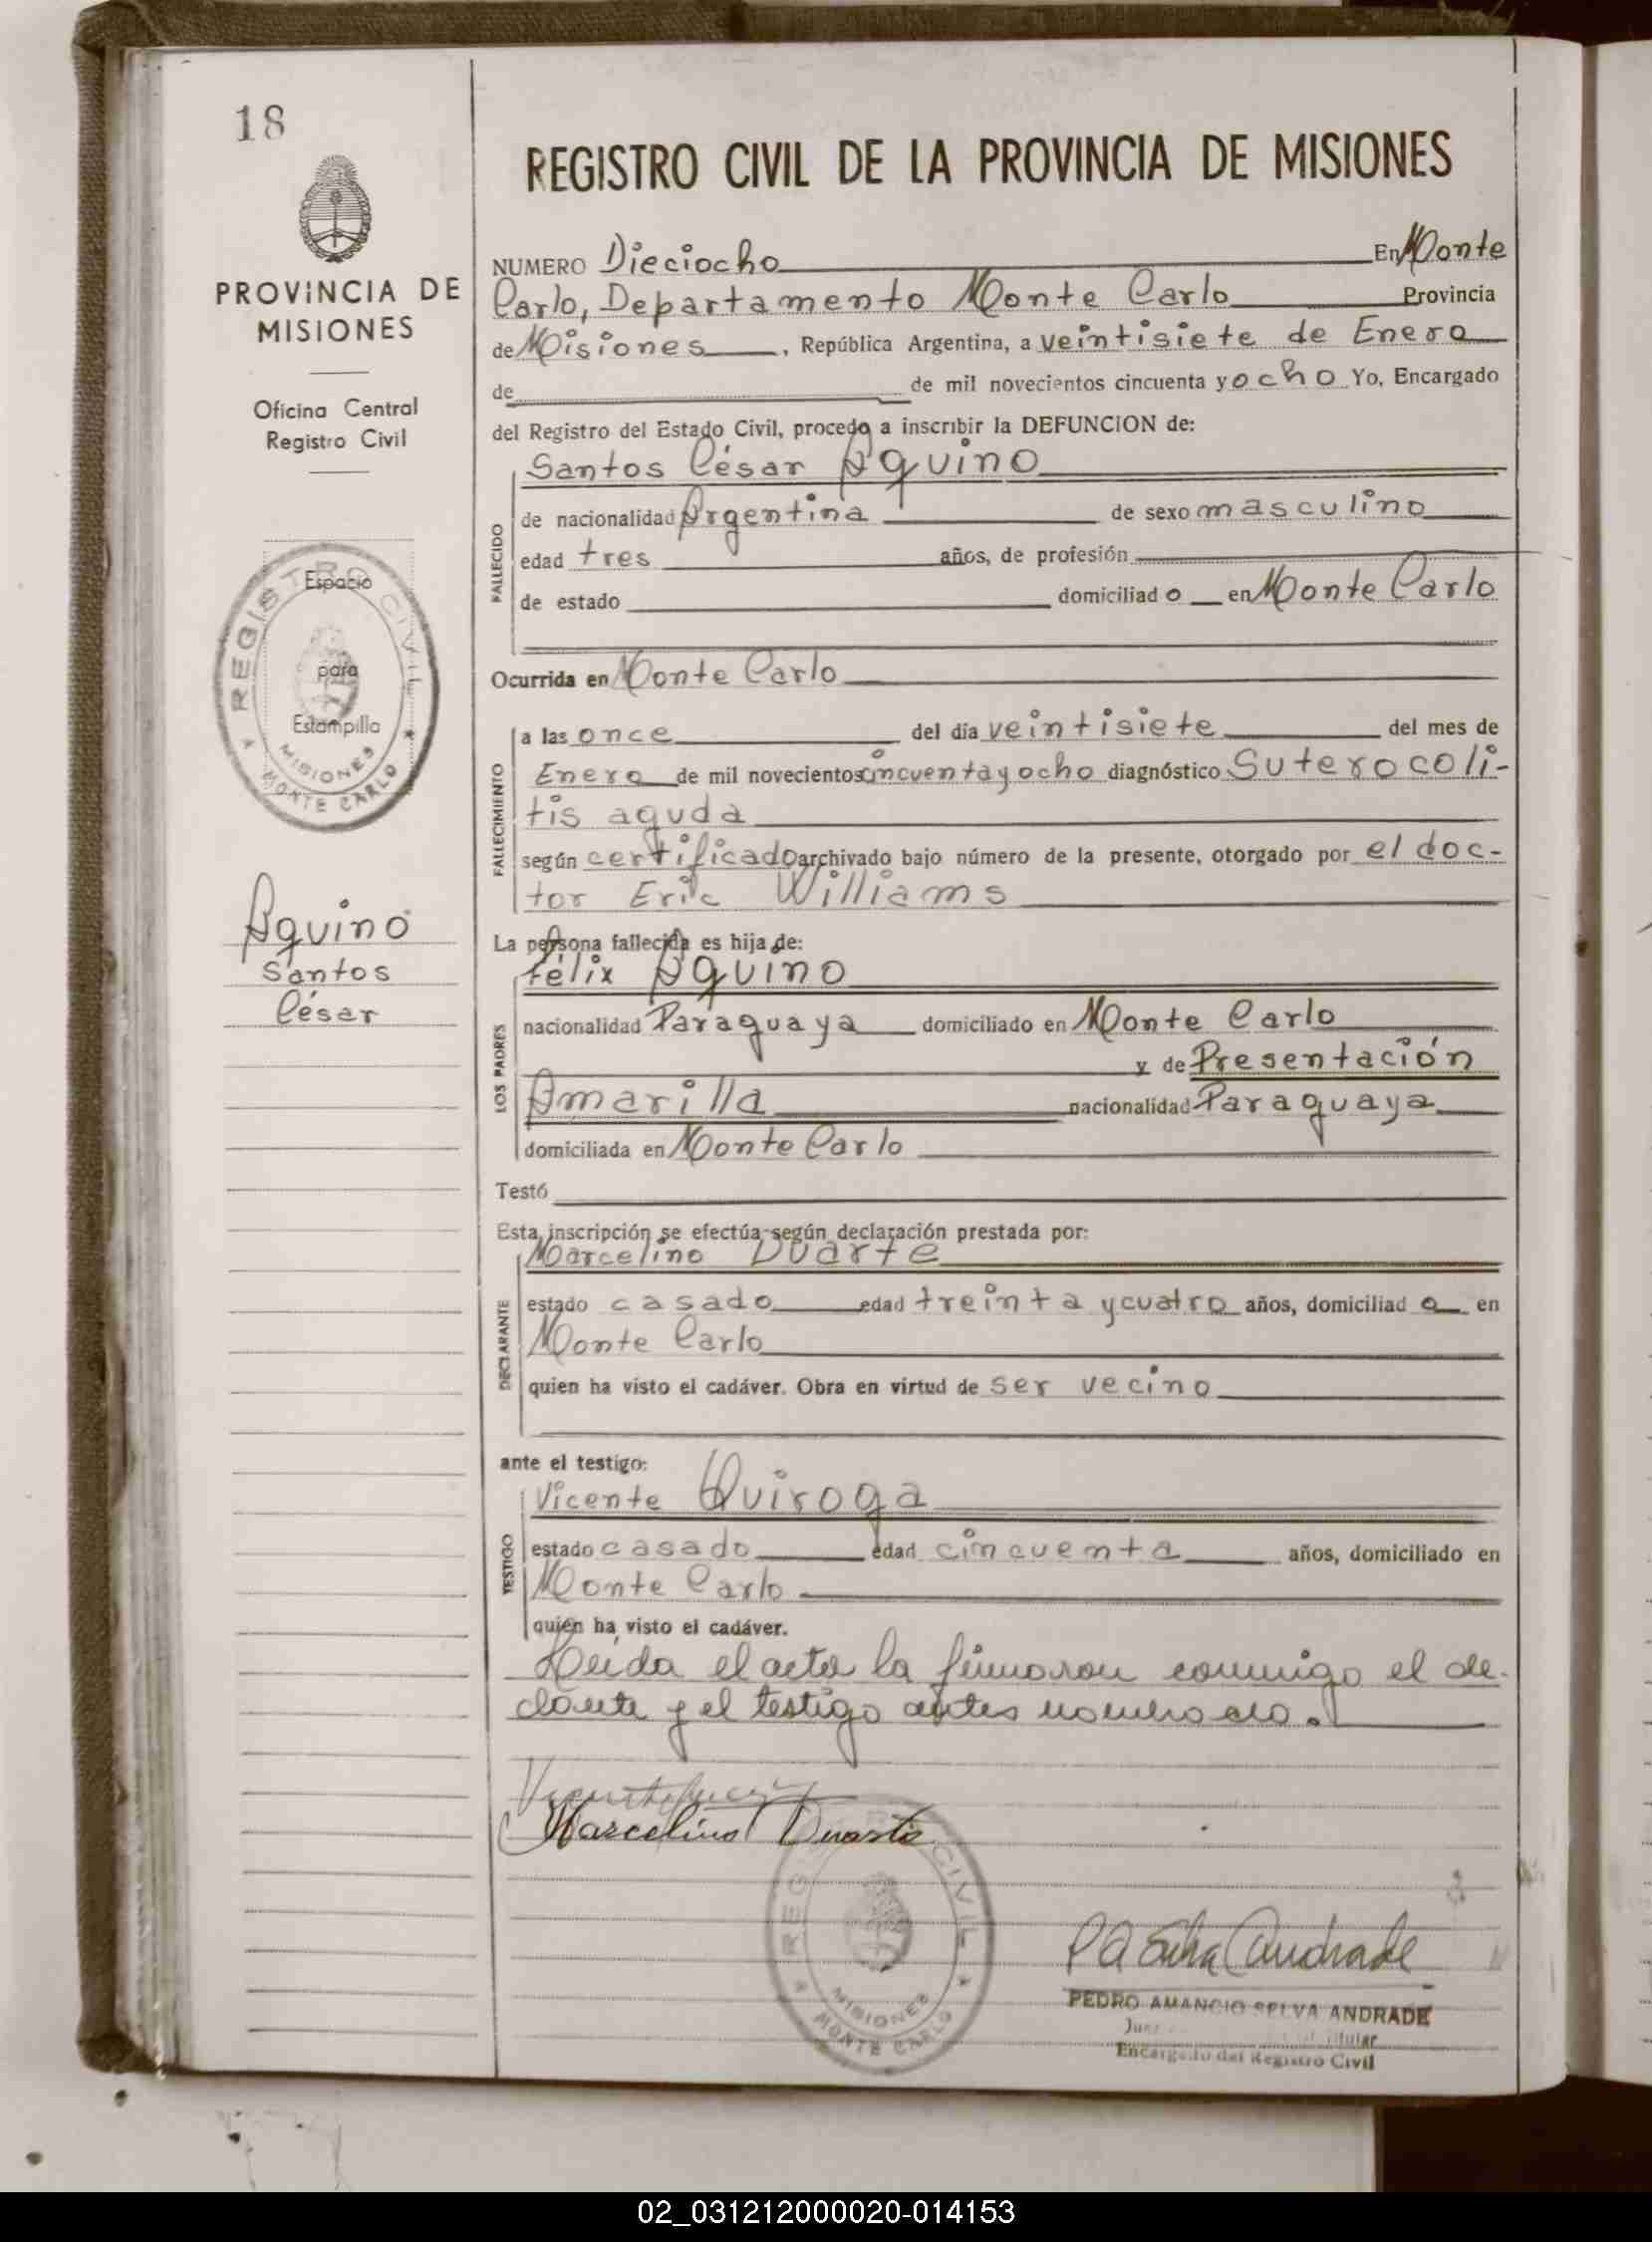 18
PROVINCIA DE
MISIONES
Oficina Central
Registro Civil
Espacio
para
Estampilla
REGISTRO CIVIL
MISIONES
MONTE CARLO
Aquino
Santos
César
REGISTRO CIVIL DE LA PROVINCIA DE MISIONES
NUMERO Dieciocho En Monte
Carlo, Departamento Monte Carlo Provincia
de Misiones, República Argentina, a veintisiete de Enero
de de mil novecientos cincuenta y ocho Yo, Encargado
del Registro del Estado Civil, procedo a inscribir la DEFUNCION de:
Santos César Aquino
FALLECIDO
de nacionalidad Argentina de sexo masculino
edad tres años, de profesión
de estado domiciliado en Monte Carlo
Ocurrida en Monte Carlo
FALLECIMIENTO
a las once del día veintisiete del mes de
Enero de mil novecientos cincuenta y ocho diagnóstico Suterocoli-
tis aguda
según certificado archivado bajo número de la presente, otorgado por el doc-
tor Eric Williams
La persona fallecida es hija de:
Félix Aquino
LOS PADRES
nacionalidad Paraguaya domiciliado en Monte Carlo
y de Presentación
Amarilla nacionalidad Paraguaya
domiciliada en Monte Carlo
Testó
Esta inscripción se efectúa según declaración prestada por:
Marcelino Duarte
DECLARANTE
estado casado edad treinta y cuatro años, domiciliado en
Monte Carlo
quien ha visto el cadáver. Obra en virtud de ser vecino
ante el testigo:
Vicente Quiroga
TESTIGO
estado casado edad cincuenta años, domiciliado en
Monte Carlo
quien ha visto el cadáver.
Leida el acta la firmaron conmigo el de-
clante y el testigo antes nombrado.
Marcelino Duarte
REGISTRO CIVIL
MISIONES
MONTE CARLO
P A Selva Andrade
PEDRO AMANCIO SELVA ANDRADE
Juez Titular
Encargado del Registro Civil
02_031212000020-014153